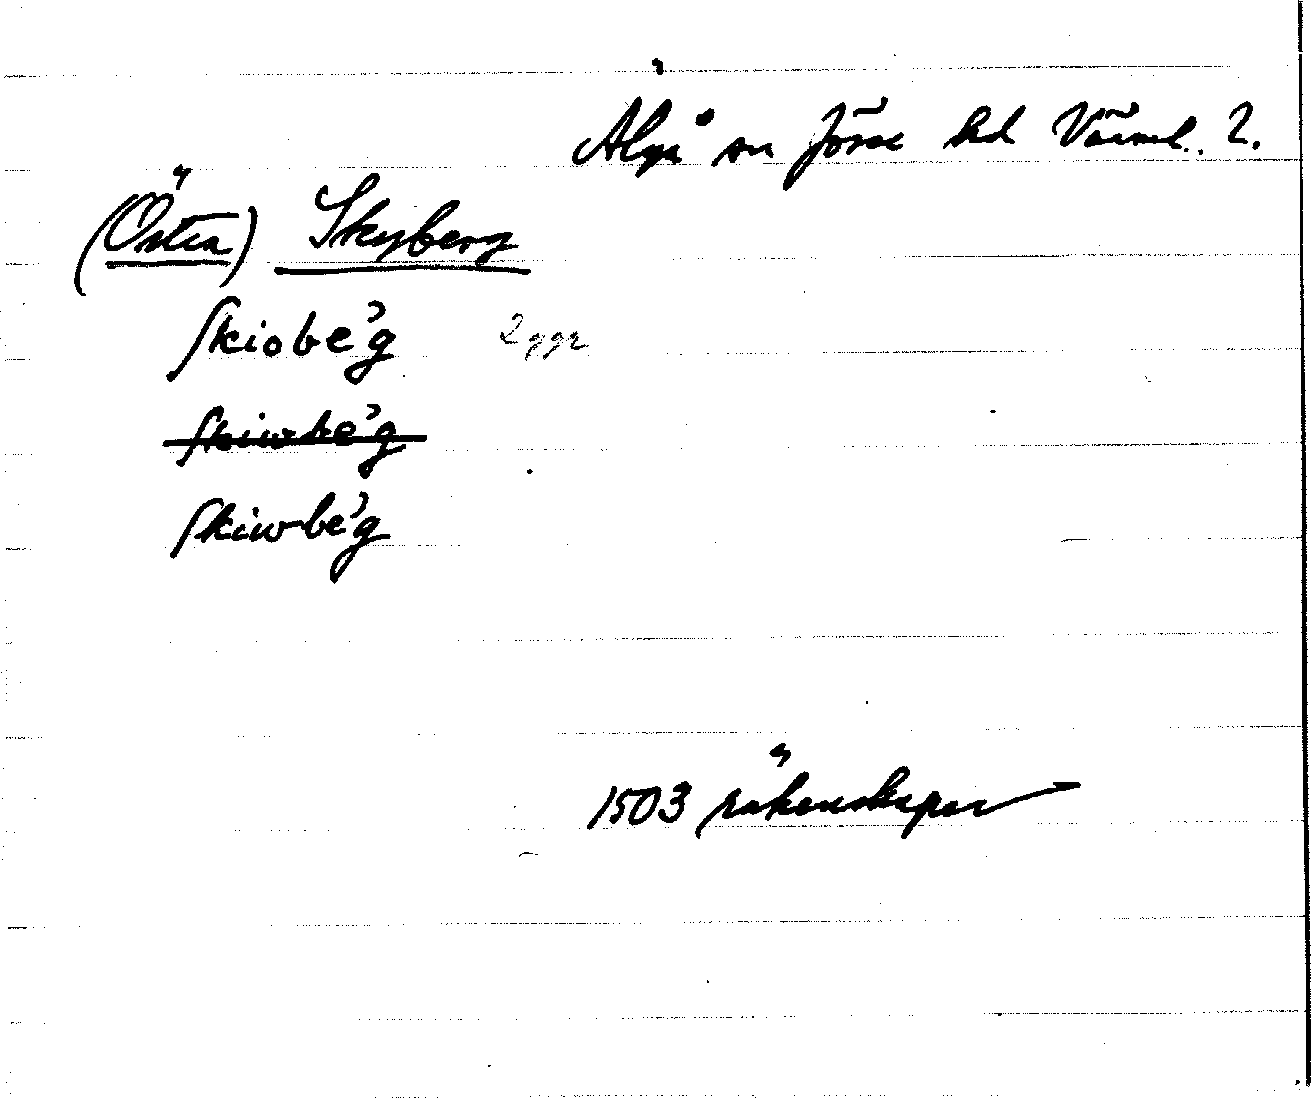 Älgå sn Jösse hd Värml. l.
(Östra) Skyberg
Skiobe'g 2 ggr
Skiwbe'g
Skiwbe'g
1503 räkenskaper